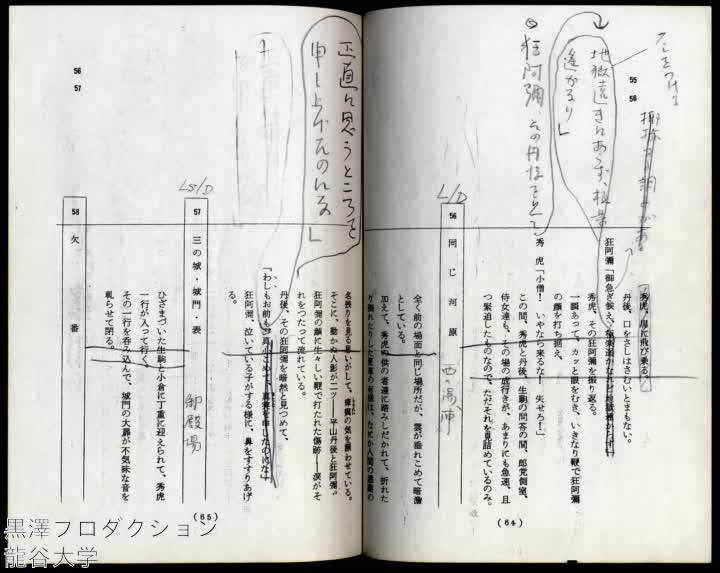 55
56
地獄遠きにあらず、極楽
遙かなり」
狂阿彌、その丹後を見て
秀虎、馬に飛び乗る。
丹後、口をさしはさむいとまもない。
狂阿彌「御急ぎ候え、
秀虎、その狂阿彌を振り返る。
一瞬あって、カッと眼をむき、いきなり鞭で狂阿彌
の顔を打ち据え、
秀虎「小僧！　いやなら来るな！　失せろ！」
この間、秀虎と丹後、生駒の問答の間、郎党側室、
侍女達も、その場の成行きが、あまりにも急速、且
つ緊迫したものなので、ただそれを見詰めているのみ。
L/D
56　同じ河原
西の湯浦
全く前の場面と同じ場所だが、雲が垂れこめて暗澹
としている。
加えて、秀虎の供の者達に踏みしだかれて、折れた
(64)
56
57
正直に思うところを
申し上げたのにな」
名残りを見る思いがして、
そこに、動かぬ人影が二ツ――平山丹後と狂阿彌。
狂阿彌の顔に生々しい鞭で打たれた傷跡――涙がそ
れをつたって流れている。
丹後、その狂阿彌を暗然と見つめて、
「わしもお前も、真心こめて、真実を申したのにな」
狂阿彌、泣いている子がする様に、鼻をすすりあげ
る。
LS/D
57　三の城・城門・表
御殿場
ひざまづいた生駒と小倉に丁重に迎えられて、秀虎
一行が入って行く。
その一行を呑み込んで、城門の大扉が不気味な音を
軋らせて閉る。
58　欠番
(65)
黒澤プロダクション
龍谷大学